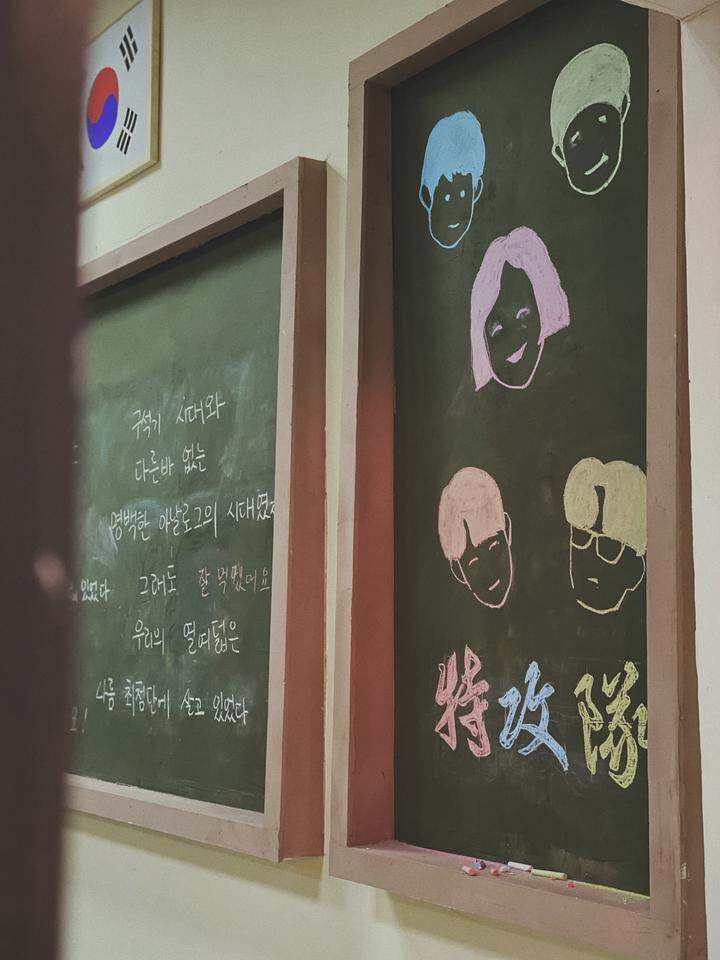 구석기 시대와
다른바 없는
명백한 아날로그의 시대였
있었다 그래도 잘
우리의
나름 최첨단에 살고 있었다
特攻隊